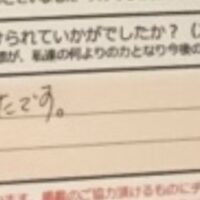 られていかがでしたか？
が、私達の何よりの力となり今後の
たです。
ます。掲載のご協力頂けるものに